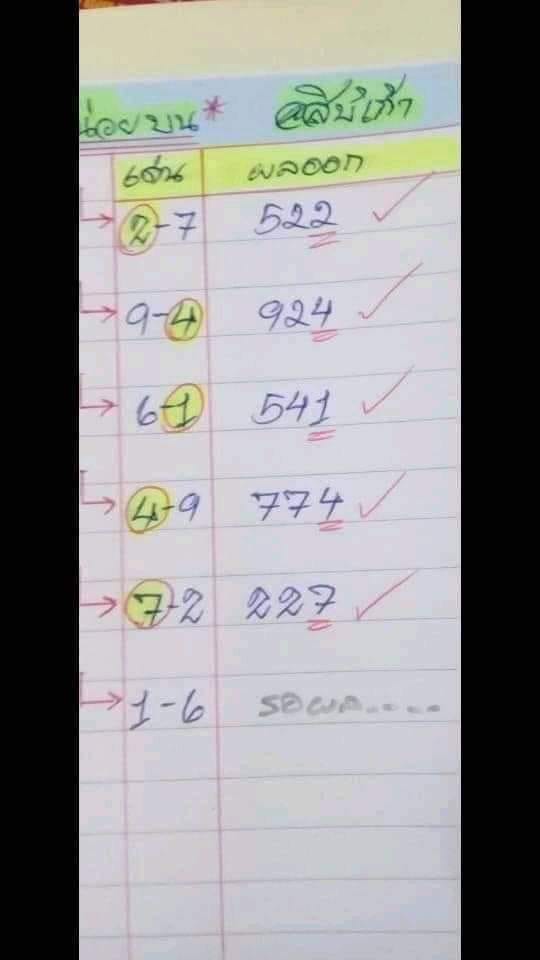 น่อยบน* สิบเก้า
เด่น ผลออก
2-7 522
9-4 924
6-1 541
4-9 774
7-2 227
1-6 รอผล.....